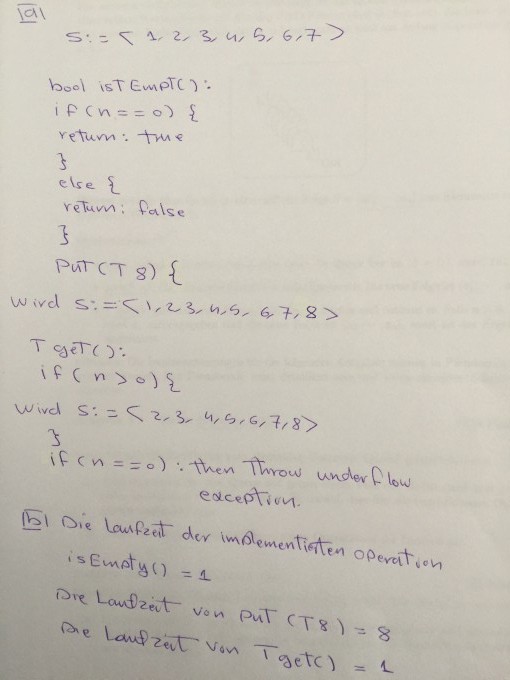 a)
S := < 1, 2, 3, 4, 5, 6, 7 >
bool isTEmpT():
if (n == 0) {
return: true
}
else {
return: false
}
PuT(T 8) {
wird S := < 1, 2 3, 4, 5, 6, 7, 8 >
T geT():
if (n > 0) {
wird S: = < 2, 3, 4, 5, 6, 7, 8 >
}
if (n == 0) : then Throw underflow
exception.
b) Die Laufzeit der implementierten operation
isEmpty() = 1
Die Laufzeit von put (T8) = 8
Die Laufzeit von T get() = 1